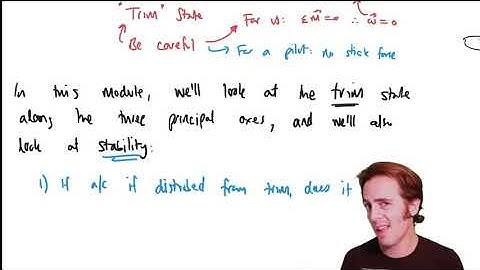 "Trim" State
For us: ΣM̂=0 ∴ ω̂=0
Be careful
For a pilot: no stick force
In this module, we'll look at the trim state
along the three principal axes, and we'll also
look at stability:
1) If a/c if distrubed from trim, does it